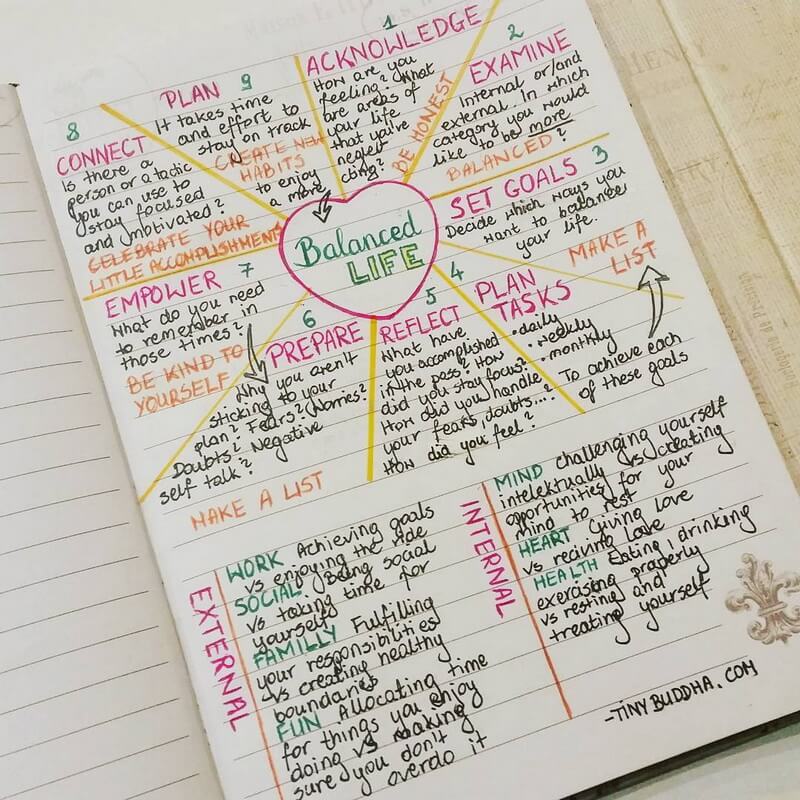 Balanced
LIFE
1
ACKNOWLEDGE
How are you
feeling? What
are areas of
your life
that you've
neglec
cting?
BE HONEST
2
EXAMINE
Internal or/and
external. In which
category you would
like to be more
BALANCED?
3
SET GOALS
Decide which ways you
want to balance
your life.
MAKE A
LIST
4
PLAN
TASKS
• daily
• weekly
• monthly
To achieve each
of these goals
5
REFLECT
What have
you accomplished
in the pass? How
did you stay focus?
How did you handle
your fears, doubts...?
How did you feel?
6
PREPARE
Why you aren't
sticking to your
plan? Fears? Worries?
Doubts? Negative
self talk?
MAKE A LIST
7
EMPOWER
What do you need
to remember in
those times?
BE KIND TO
YOURSELF
8
CONNECT
Is there a
person or a tactic
you can use to
stay focused
and motivated?
CELEBRATE YOUR
LITTLE ACCOMPLISHMENT
9
PLAN
It takes time
and effort to
stay on track
CREATE NEW
HABITS
to enjoy
a more
EXTERNAL
WORK Achieving goals
vs enjoying the ride
SOCIAL. Being social
vs taking time for
yourself
FAMILLY Fulfilling
your responsibilities
vs creating healthy
boundaries
FUN Allocating time
for things you enjoy
doing vs making
sure you don't
overdo it
INTERNAL
MIND challenging yourself
intelektually vs creating
opportunities for your
mind to rest
HEART Giving Love
vs reciving Love
HEALTH Eating, drinking
exercising properly
vs resting and
treating yourself
-TINYBUDDHA.COM